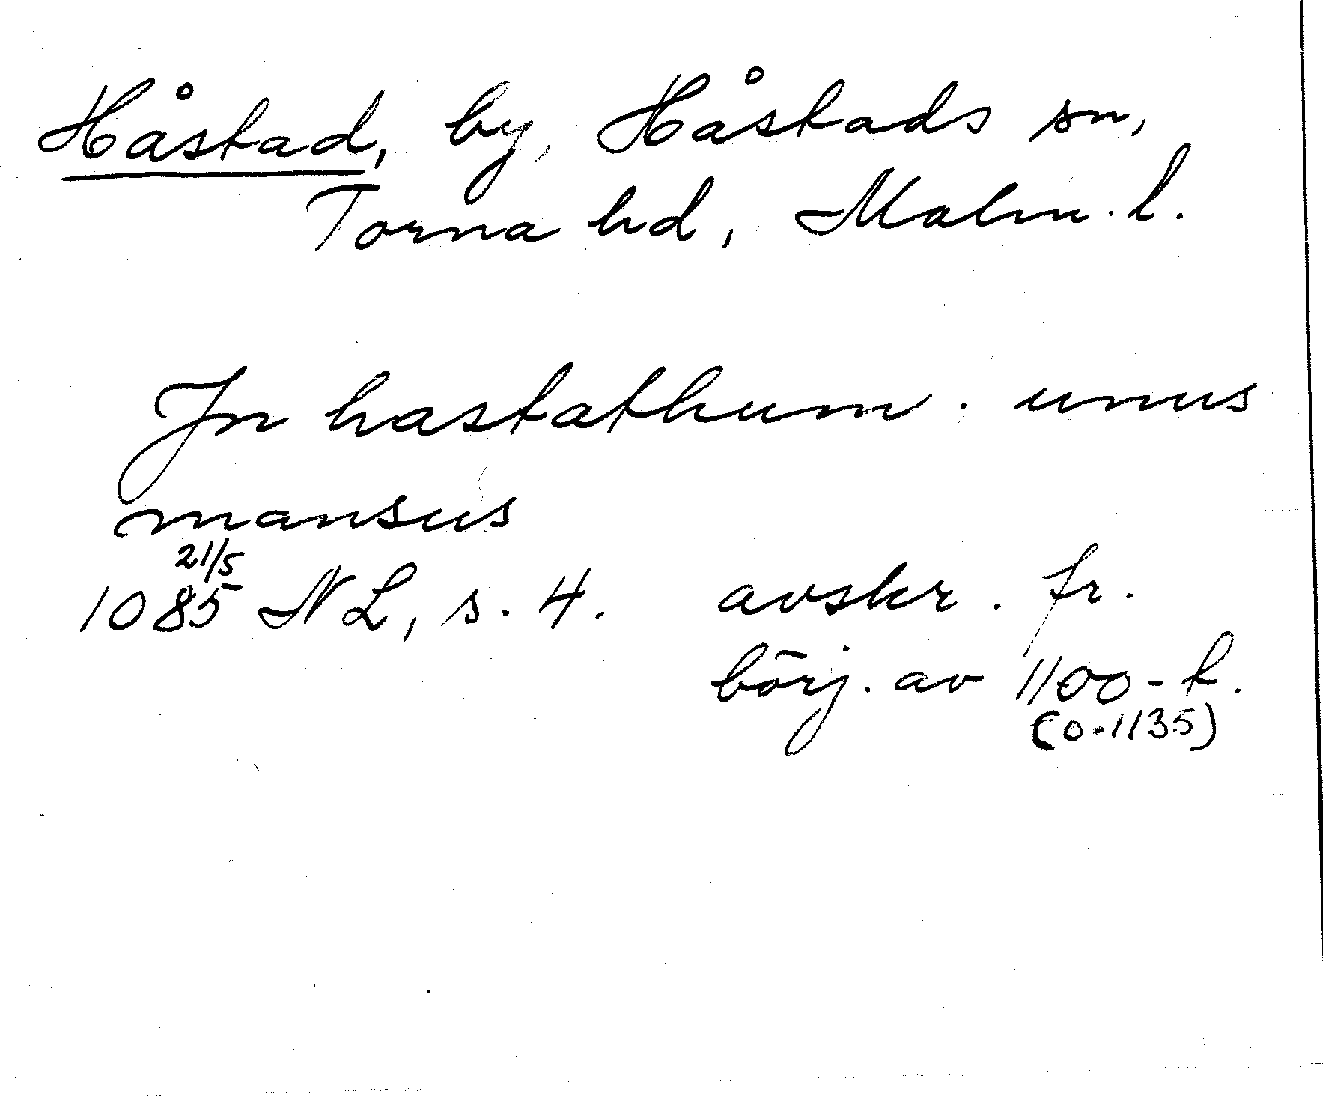 Håstad, by, Håstads sn,
Torna hd, Malm. l.
In hastathum. unus
mansus
21/5
1085 NL, s. 4. avskr. fr.
börj. av 1100-t.
(o. 1135)